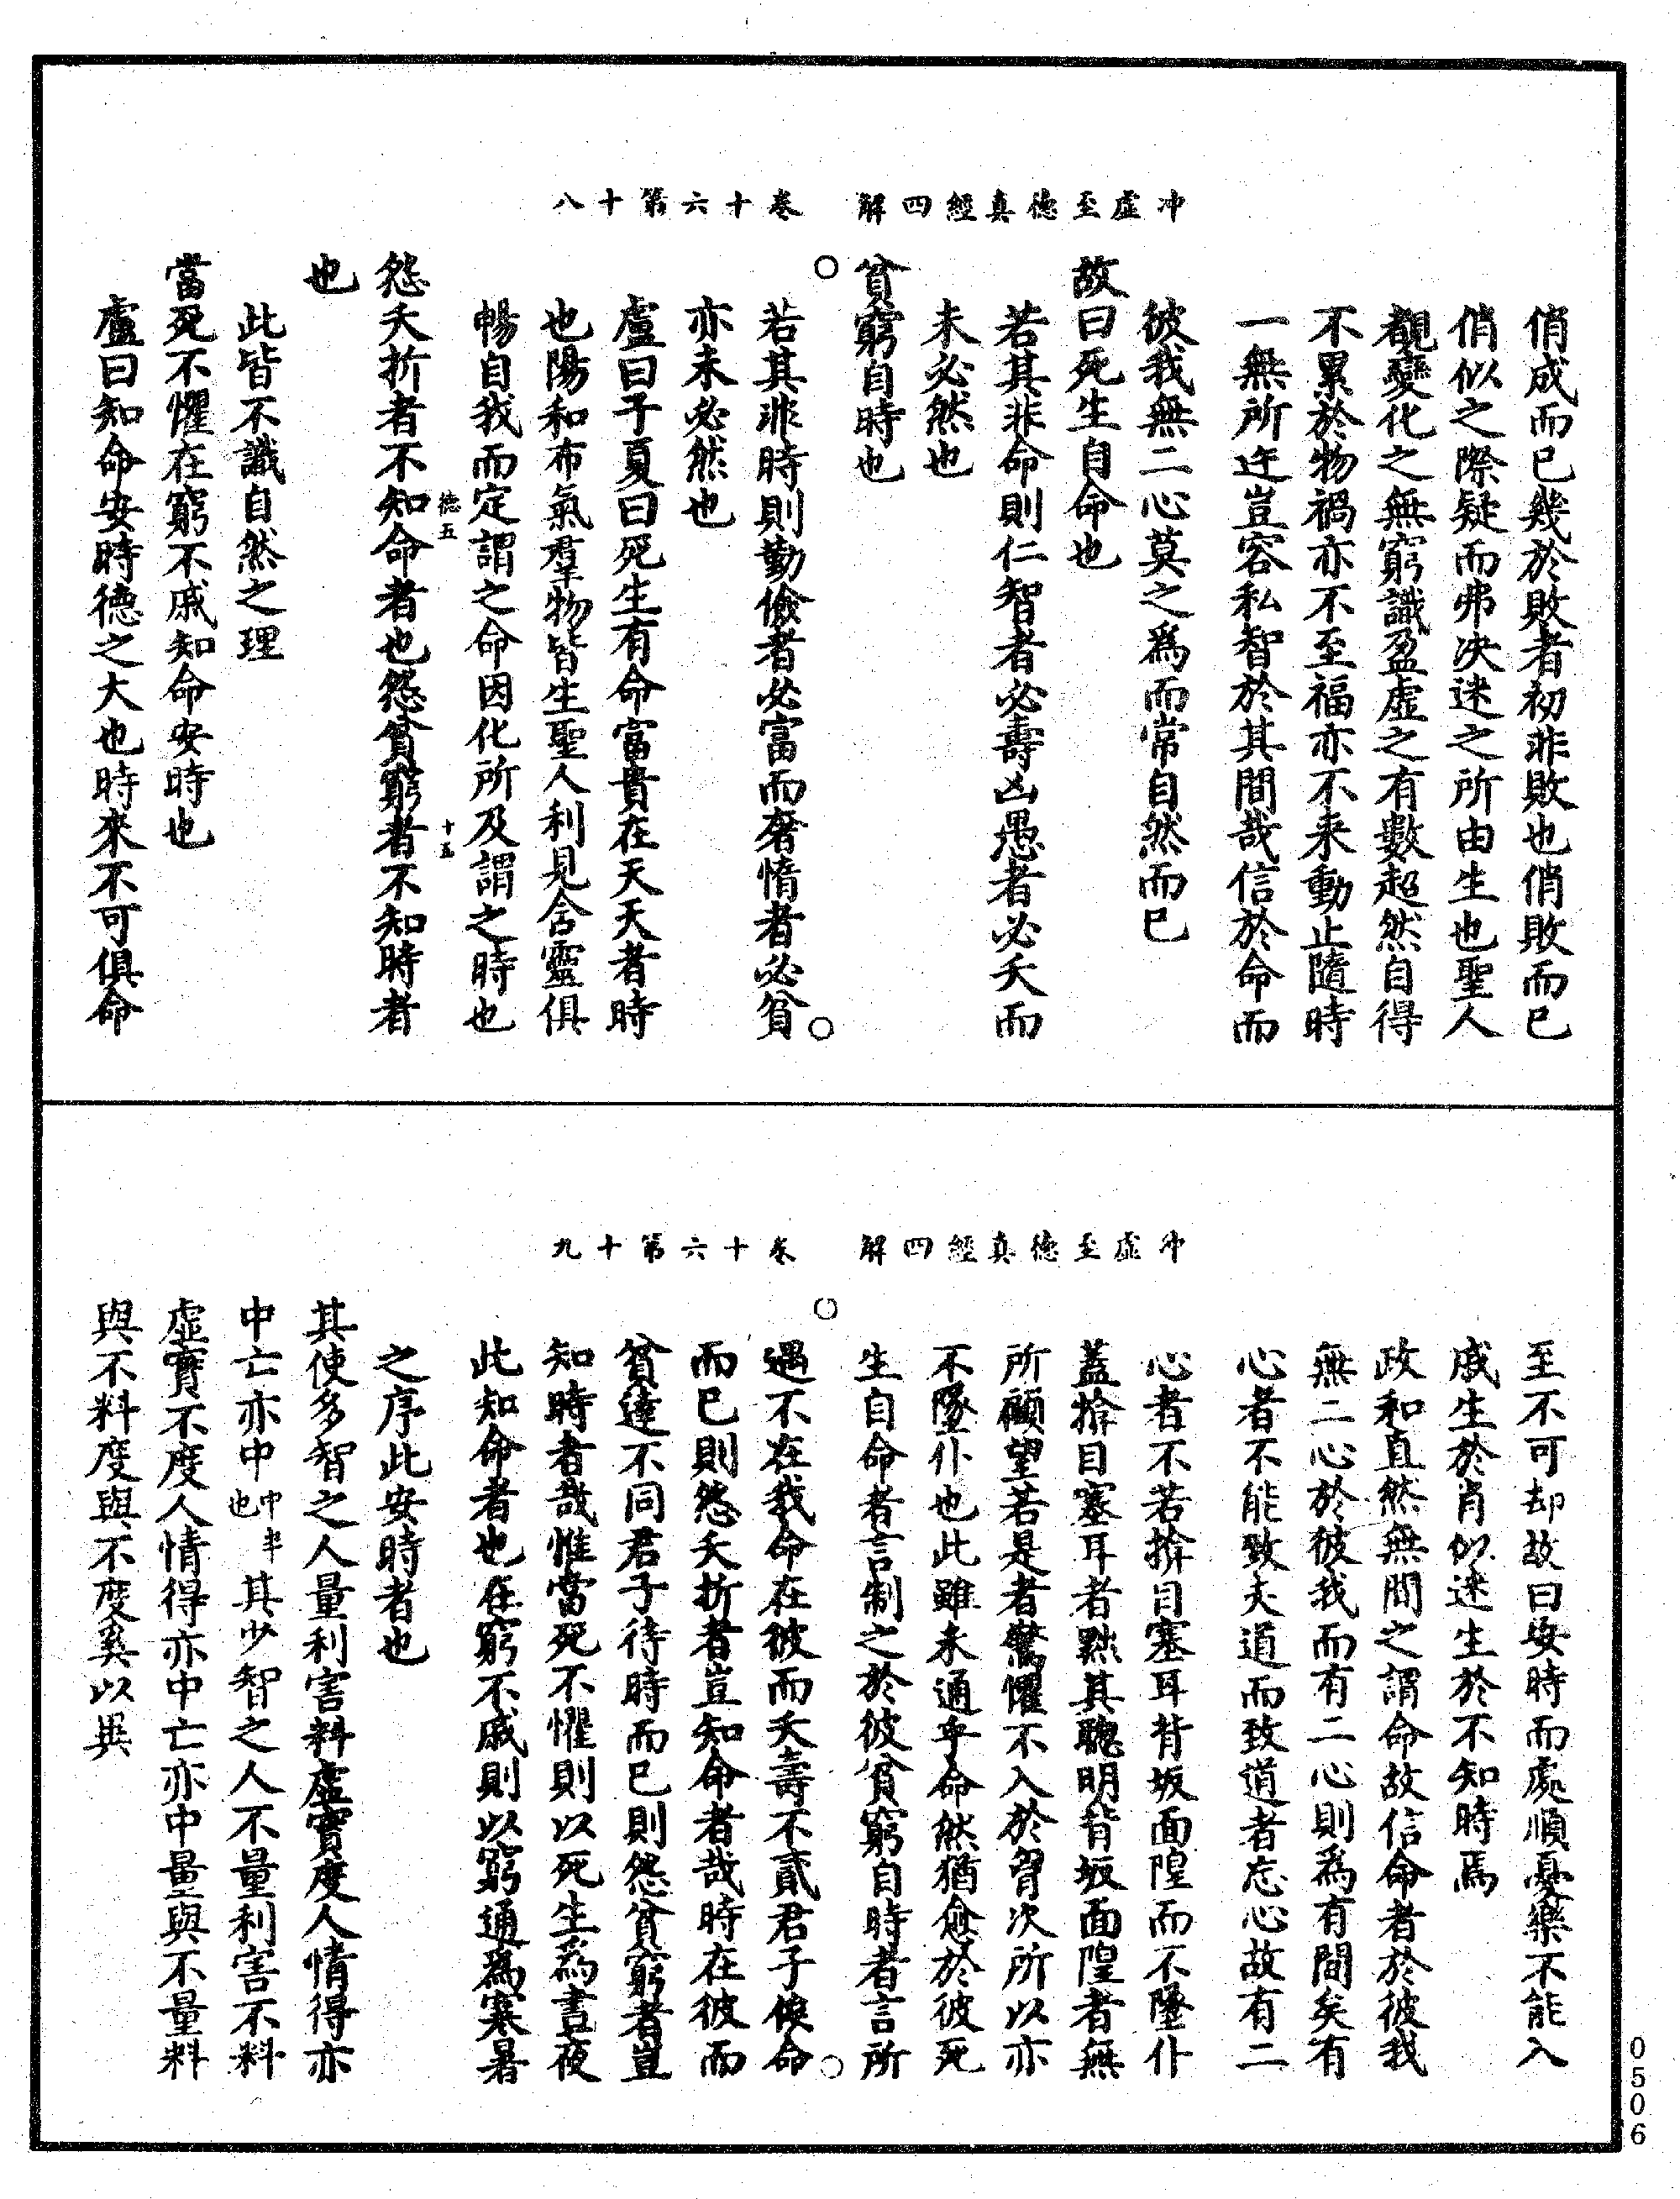 冲虛至德真經四解　卷十六第十八
俏成而已幾於敗者初非敗也俏敗而已
俏似之際疑而弗決迷之所由生也聖人
覩變化之無窮識盈虛之有數超然自得
不累於物禍亦不至福亦不來動止隨時
一無所迕豈容私智於其間哉信於命而
彼我無二心莫之爲而常自然而已
故曰死生自命也
若其非命則仁智者必壽凶愚者必夭而
未必然也
貧窮自時也
若其非時則勤儉者必富而奢惰者必貧
亦未必然也
盧曰子夏曰死生有命富貴在天天者時
也陽和布氣羣物皆生聖人利見含靈俱
暢自我而定謂之命因化所及謂之時也
德五　十五
怨夭折者不知命者也怨貧窮者不知時者
也
此皆不識自然之理
當死不懼在窮不戚知命安時也
盧曰知命安時德之大也時來不可俱命
冲虛至德真經四解　卷十六第十九
至不可却故曰安時而處順憂樂不能入
戚生於肖似迷生於不知時焉
政和直然無間之謂命故信命者於彼我
無二心於彼我而有二心則爲有間矣有
心者不能致夫道而致道者忘心故有二
心者不若揜目塞耳背坂面隍而不墜仆
蓋揜目塞耳者黜其聰明背坂面隍者無
所顧望若是者驚懼不入於胷次所以亦
不墜仆也此雖未通乎命然猶愈於彼死
生自命者言制之於彼貧窮自時者言所
遇不在我命在彼而夭壽不貳君子俟命
而已則怨夭折者豈知命者哉時在彼而
貧達不同君子待時而已則怨貧窮者豈
知時者哉惟當死不懼則以死生爲晝夜
此知命者也在窮不戚則以窮通爲寒暑
之序此安時者也
其使多智之人量利害料虛實度人情得亦
中亡亦中中半也其少智之人不量利害不料
虛實不度人情得亦中亡亦中量與不量料
與不料度與不度奚以異
0506